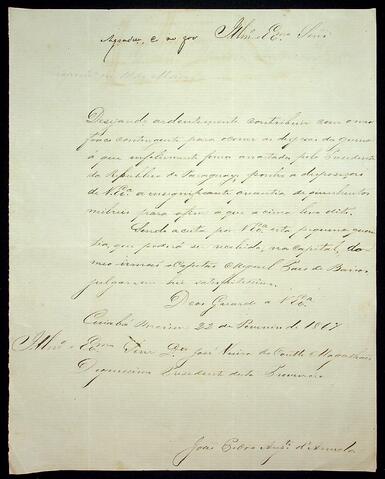 Agradeça, e ao gov Illmo e Exmo Senr
Desejando ardentemente contribuir com o meo
fraco contingente para occorrer as despezas da guerra
á que infelizmente fomos arrastados pelo Presidente
da Republica do Paraguay, ponho a disposição
de V. Exa. a insignificante quantia de quinhentos
milreis para o fim a que acima levo dito.
Sendo aceita por V Exa esta pequena quan
tia, que poderá ser recebida, na capital, do
meo irmão o Capitão Miguel Paes de Barros
julgar-me-hei satisfeitissimo.
Deos Guarde a V Exa.
Cuiabá 22 de Fevereiro de 1867
Illmo e Exmo Senr Dor José Vieira do Couto Magalhães
Dignissimo Presidente desta Provincia
João